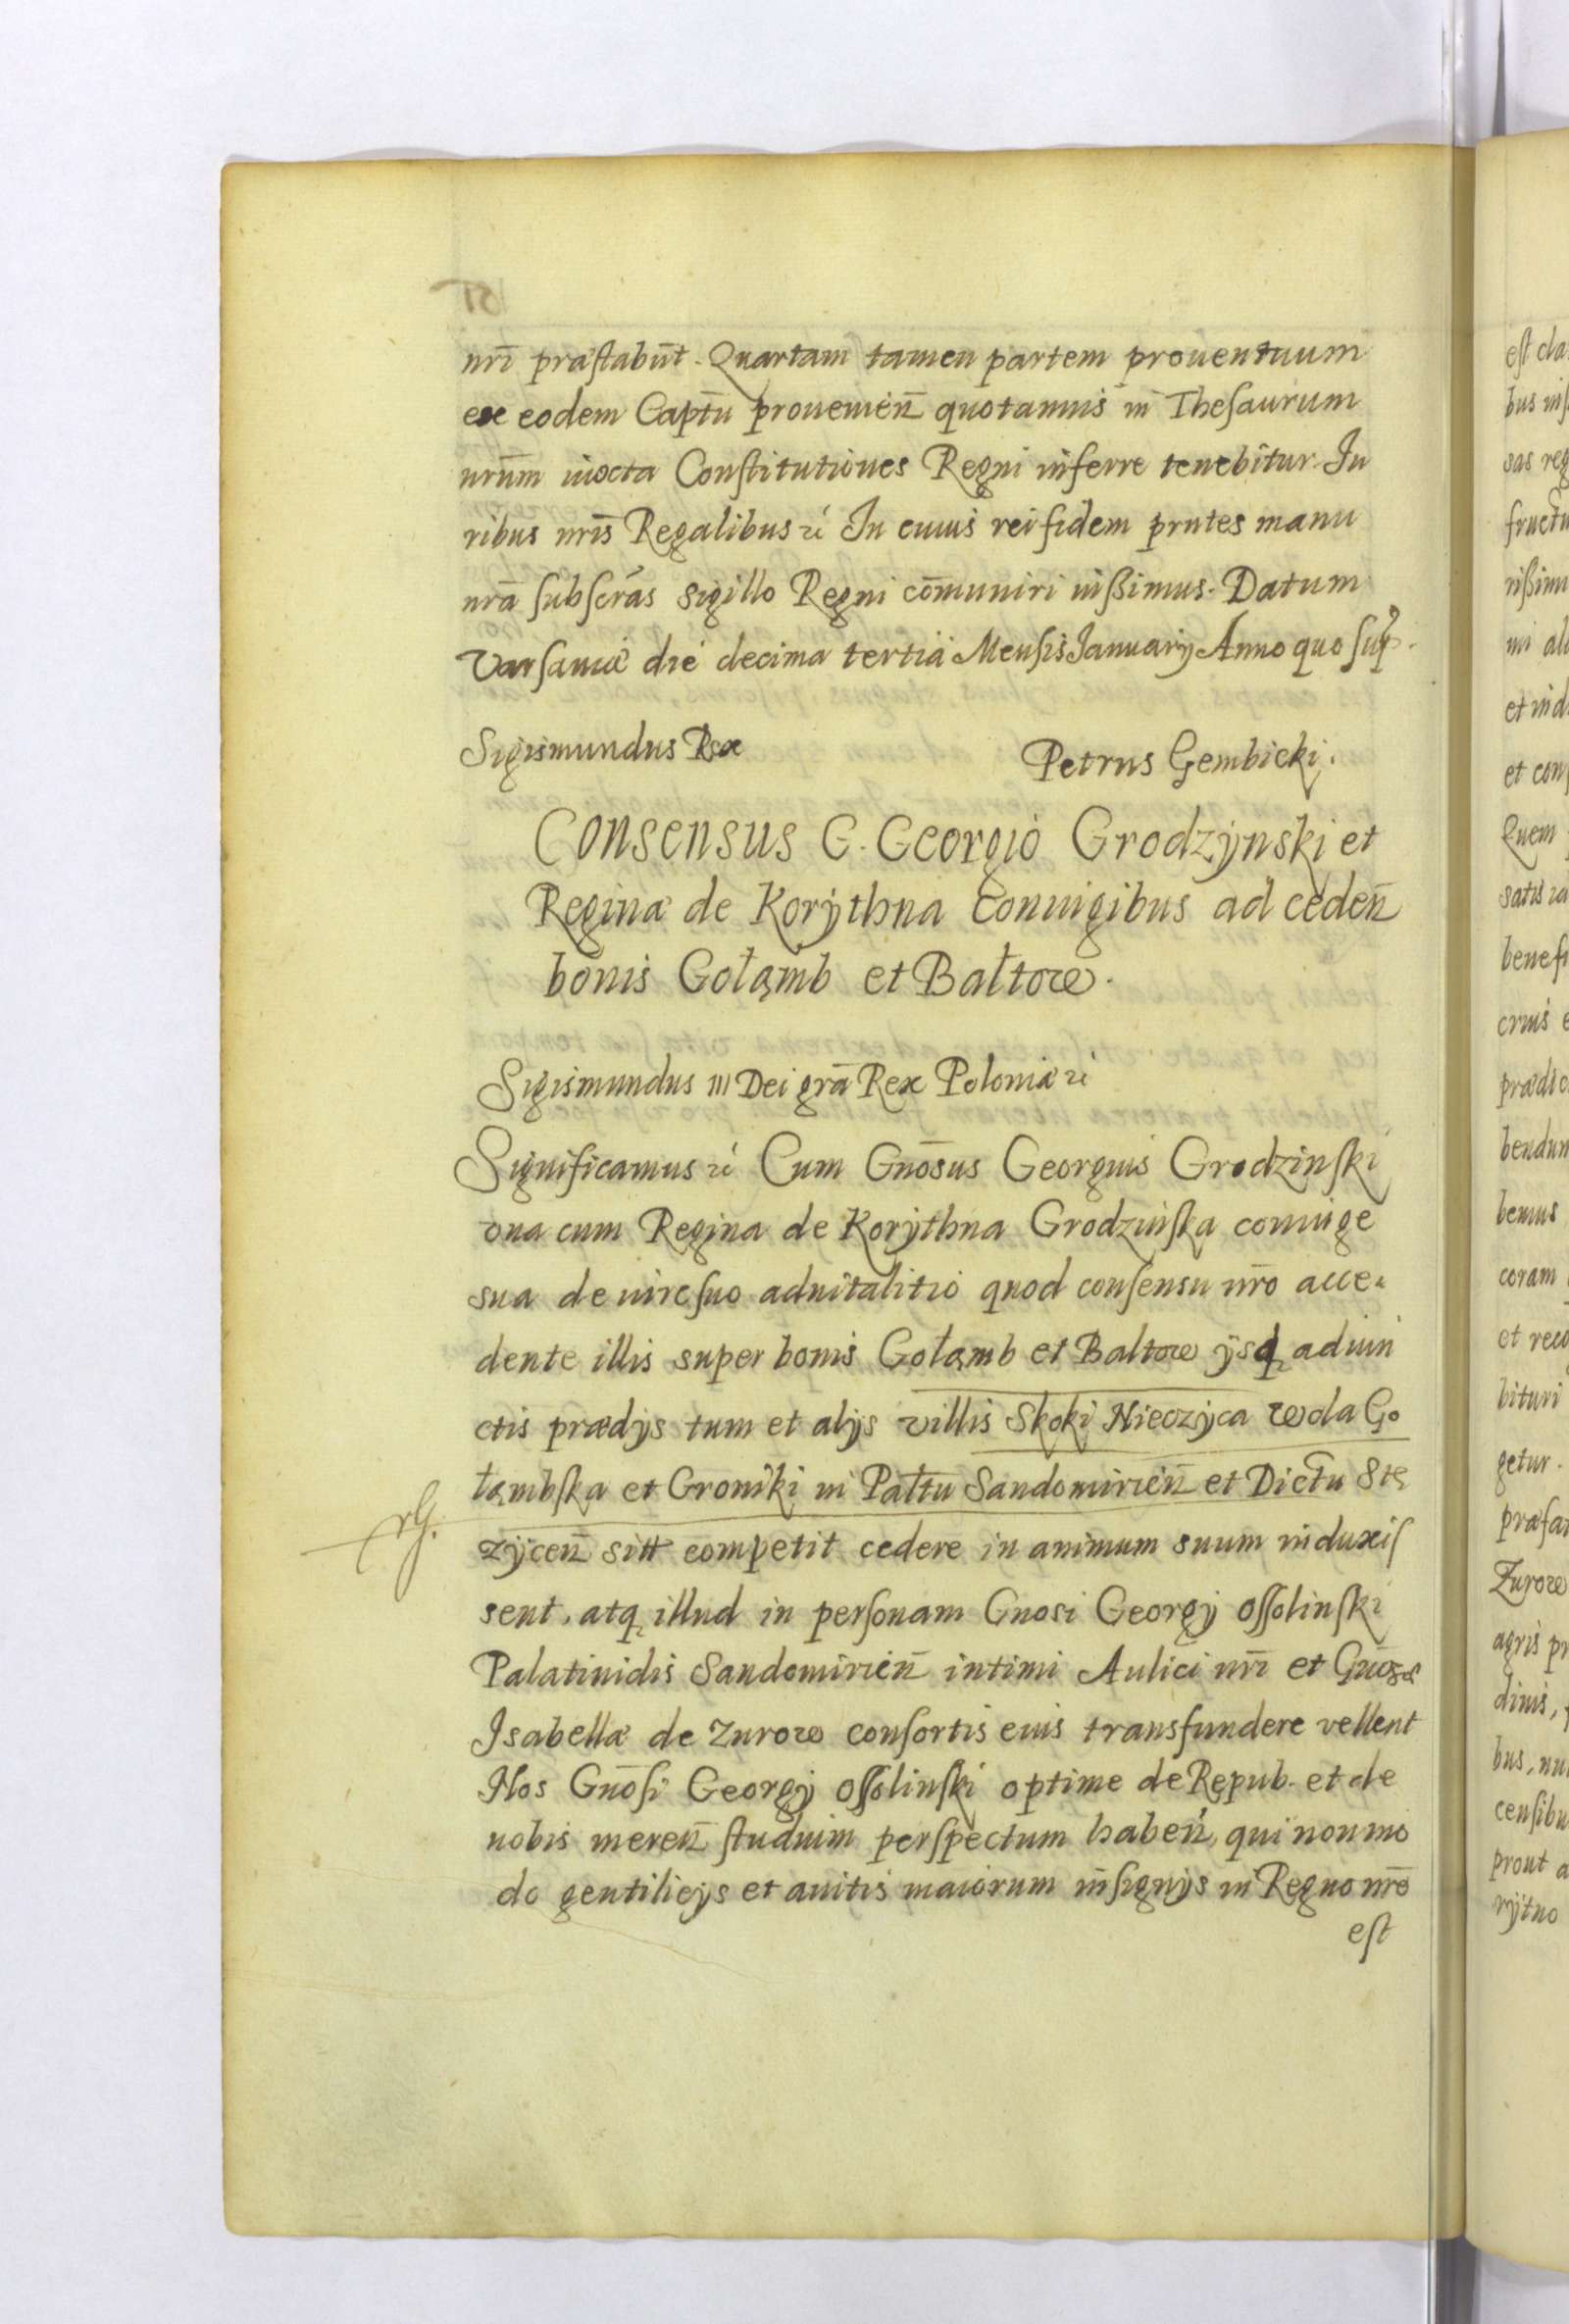 nrī præstabūt. Quartam tamen partem prouentuum
ex eodem Captū prouenieñ quotannis in Thesaurum
nrūm iuxta Constitutiones Regni inferre tenebitur. Iu
ribus nrīs Regalibus &c In cuius rei fidem prntes manu
nrā subscrás sigillo Regni cōmuniri iussimus. Datum
Varsauiæ die decima tertia Mensis January Anno quo sup.
Sigismundus Rex
Petrus Gembicki.
Consensus G. Georgio Grodzynski et
Reginæ de Korythna Coniugibus ad cedeñ
bonis Gołąmb et Bałtow.
Sigismundus III Dei grā Rex Poloniæ &c
Significamus &c Cum Gnōsus Georgius Grodzinski
vna cum Regina de Korythna Grodzinska coniuge
sua de iure suo aduitalitio quod consensu nrō acce
dente illis super bonis Gołąmb et Baltow ysq adiun
ctis prædys tum et alys villis Skoki Nieczyca Wola Go
łąmbska et Groniki in Pałtu Sandomirieñ et Dictu Stę
zyceñ sitt competit cedere in animum suum induxis
sent, atq illud in personam Gnosi Georgy Ossolinski
Palatinidis Sandomirieñ intimi Aulici nrī et Gnosæ
Isabellæ de Zurow consortis eius transfundere vellent
Nos Gnōsi Georgy Ossolinski optime de Repub. et de
nobis mereñ studium perspectum habeń, qui non mo
do gentilicys et auitis maiorum insignys in Regno nrō
est